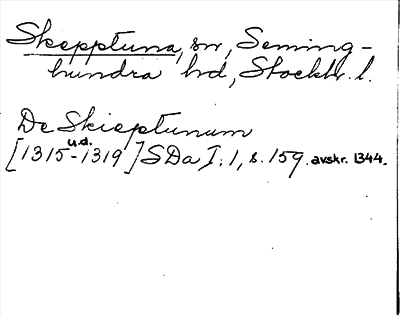 Skepptuna, sn, Seming-
hundra hd, Stockh. l.
De Skieptunum
[1315 u.d. -1319] SDa I:1, s. 159. avskr. 1344.